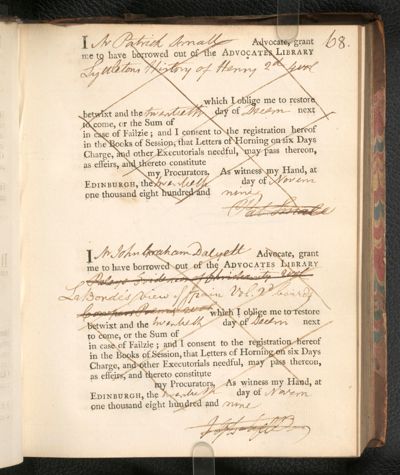 68.
I Mr Patrick Small Advocate, grant
me to have borrowed out of the ADVOCATES LIBRARY
Lyttletons History of Henry 2d
which I oblige me to restore
betwixt and the twentieth day of Decem next
to come, or the Sum of
in case of Failzie; and I consent to the registration hereof
in the Books of Session, that Letters of Horning on six Days
Charge, and other Executorials needful, may pass thereon,
as effeirs, and thereto constitute
my Procurators. As witness my Hand, at
EDINBURGH, the twentieth day of Novem
one thousand eight hundred and nine
Pat Small
I Mr John Graham Dalyell Advocate, grant
me to have borrowed out of the ADVOCATES LIBRARY
Evidence of Christianity
La Borde's View of Spain Vol. 2d
which I oblige me to restore
betwixt and the twentieth day of Decem next
to come, or the Sum of
in case of Failzie; and I consent to the registration hereof
in the Books of Session, that Letters of Horning on six Days
Charge, and other Executorials needful, may pass thereon,
as effeirs, and thereto constitute
my Procurators. As witness my Hand, at
EDINBURGH, the twentieth day of Novem
one thousand eight hundred and nine